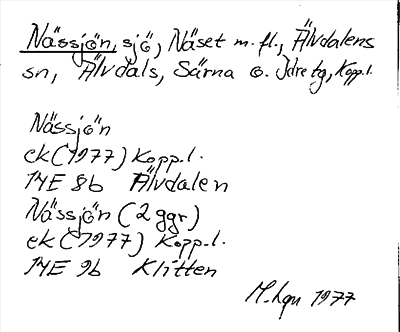 Nässjön, sjö, Näset m. fl., Älvdalens
sn, Älvdals, Särna o. Idre tg, Kopp.l.
Nässjön
ek (1977) Kopp.l.
14E 8b Älvdalen
Nässjön (2 ggr)
ek (1977) Kopp.l.
14E 9b Klitten
1977